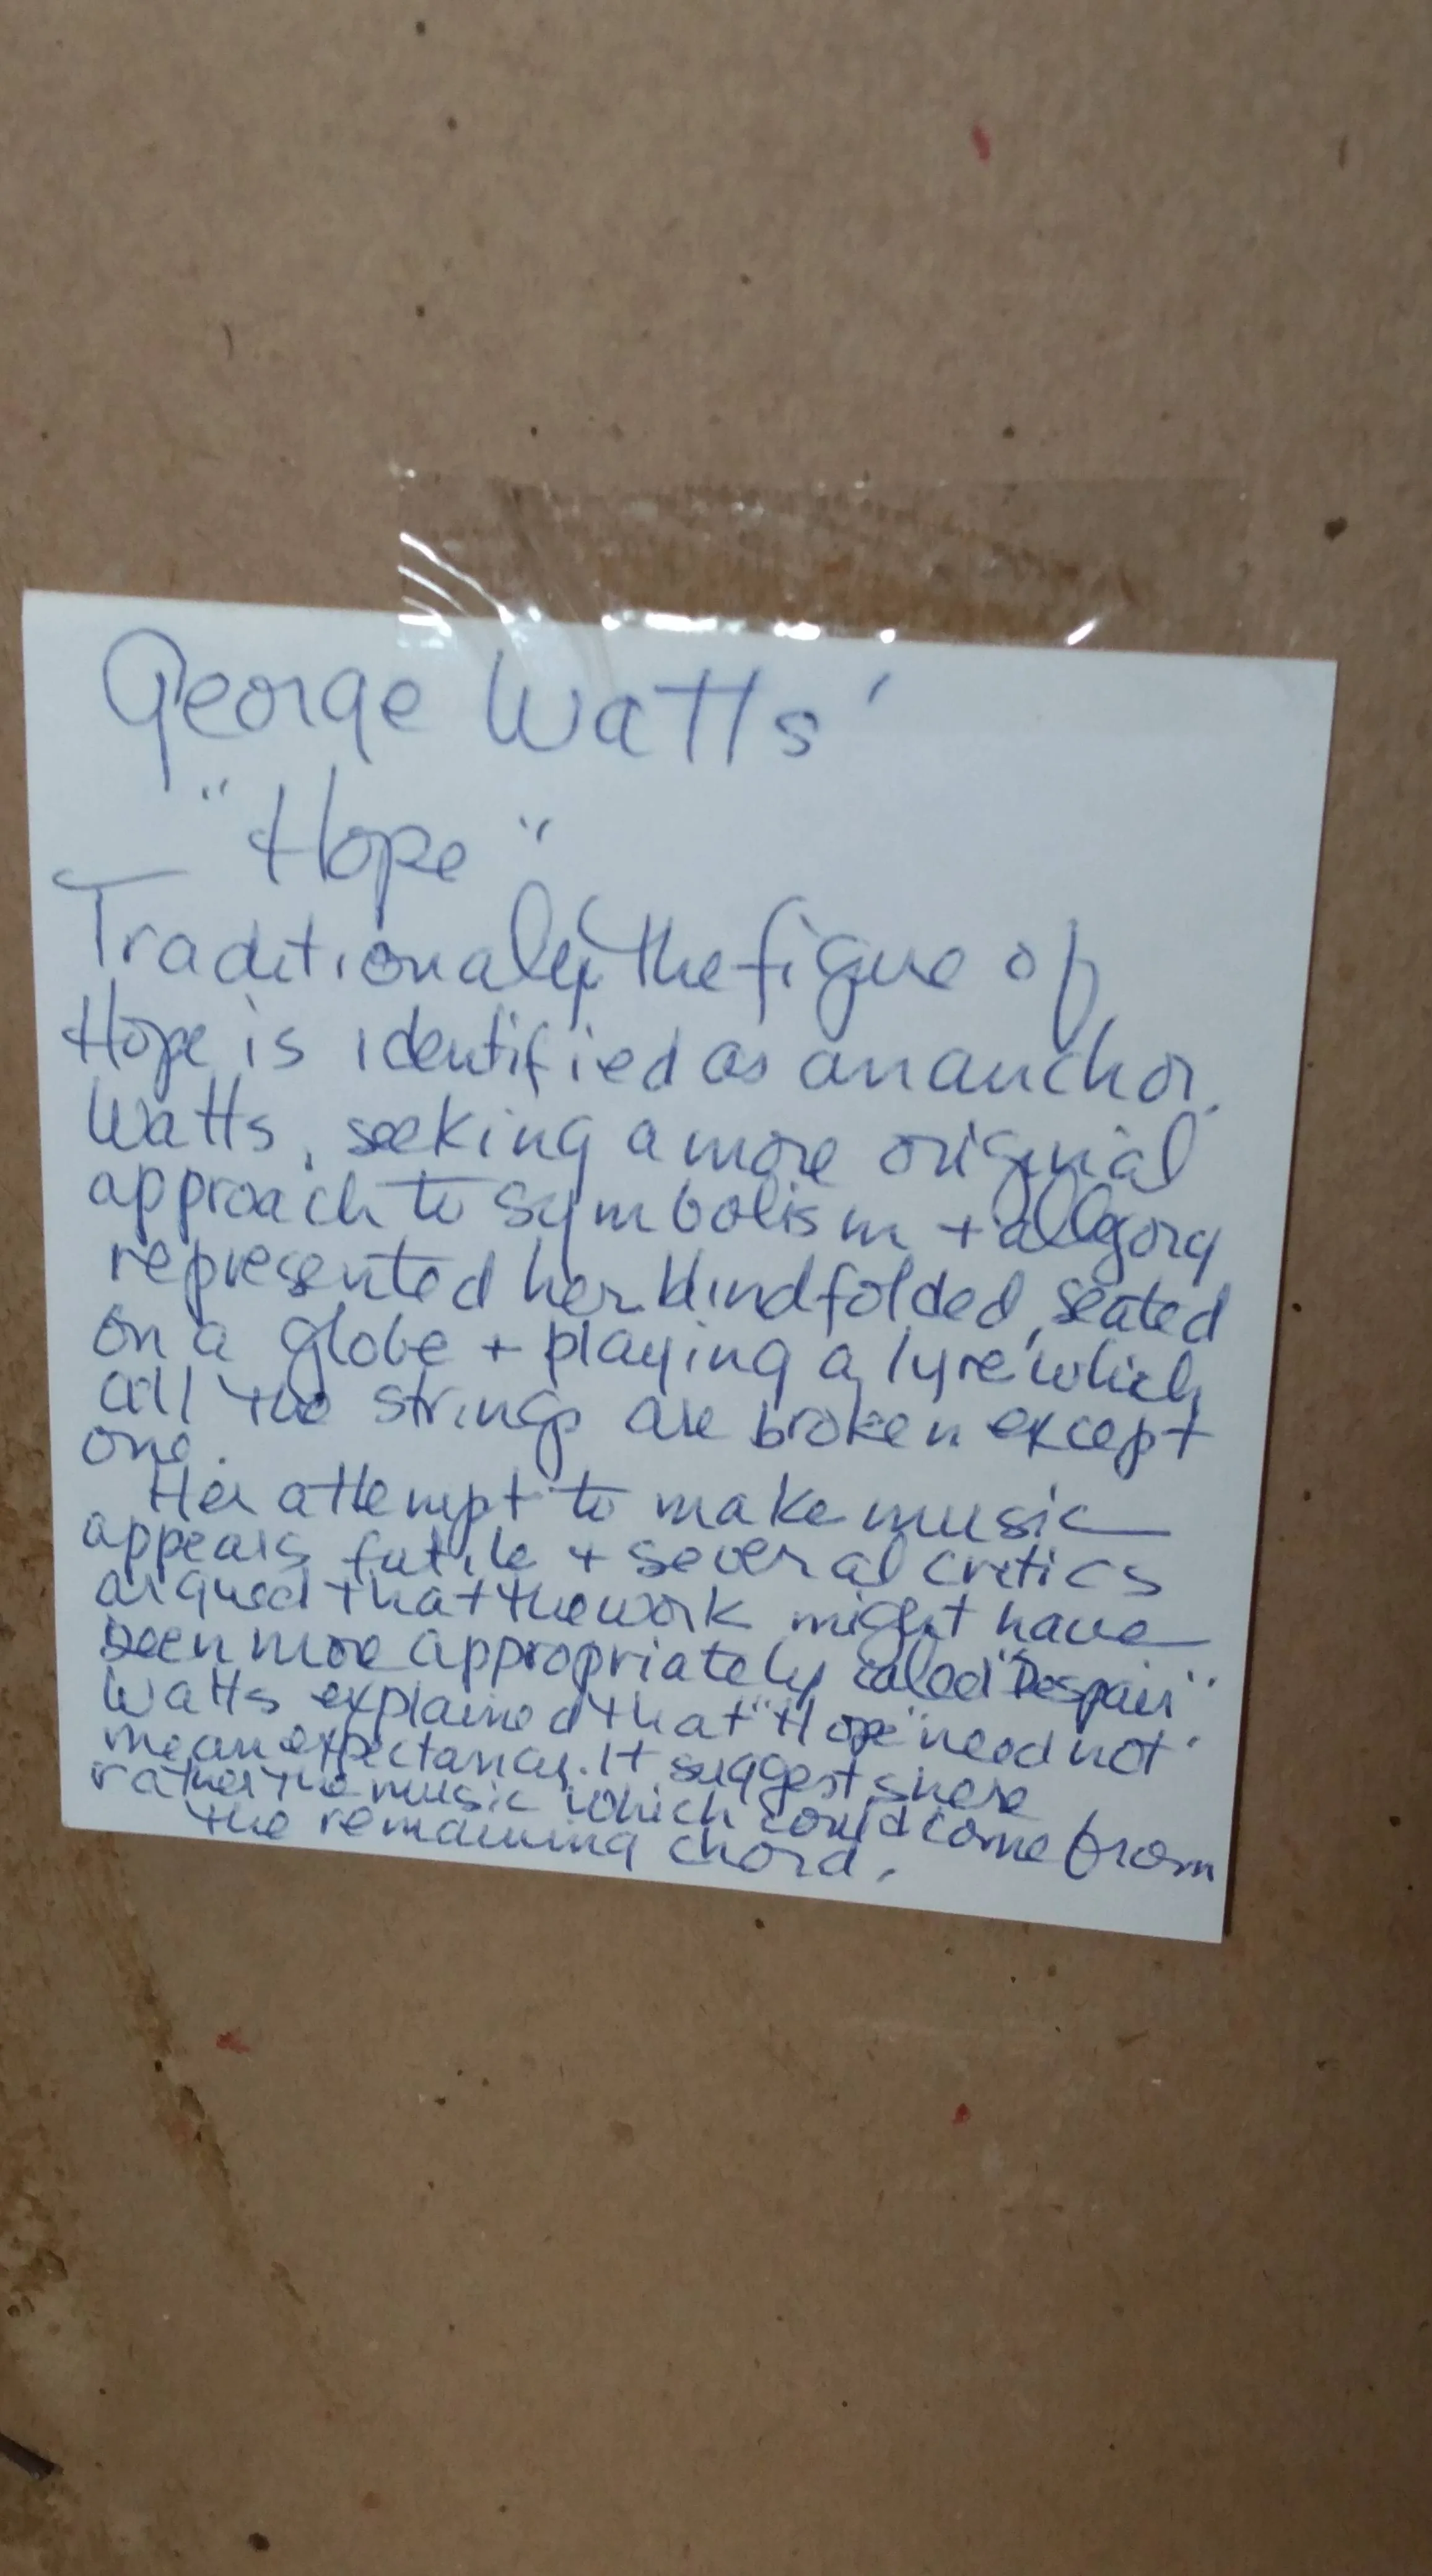 George Watts'
"Hope"
Traditionaly the figure of
Hope is identified as an anchor.
Watts, seeking a more original
approach to symbolism + allegory
represented her blindfolded, seated
on a globe + playing a lyre which
all the strings are broken except
one.
Her attempt to make music
appears futile + several critics
argued that the work might have
been more appropriately called "Despair"
Watts explained that "Hope" need not
mean expectancy. It suggests here
rather the music which could come from
the remaining chord.